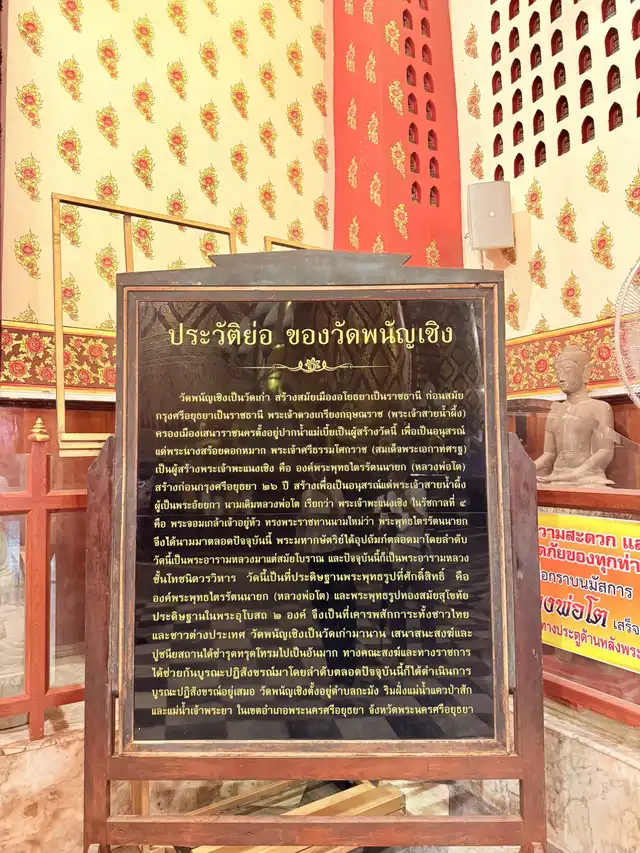 ประวัติย่อ ของวัดพนัญเชิง
วัดพนัญเชิงเป็นวัดเก่า สร้างสมัยเมืองอโยธยาเป็นราชธานี ก่อนสมัย
กรุงศรีอยุธยาเป็นราชธานี พระเจ้าดวงเกรียงกฤษณราช (พระเจ้าสายน้ำผึ้ง)
ครองเมืองเสนาราชนครตั้งอยู่ปากน้ำแม่เบี้ยเป็นผู้สร้างวัดนี้ เพื่อเป็นอนุสรณ์
แด่พระนางสร้อยดอกหมาก พระเจ้าศรีธรรมโศกราช (สมเด็จพระเอกาทศรฐ)
เป็นผู้สร้างพระเจ้าพะแนงเชิง คือ องค์พระพุทธไตรรัตนายก (หลวงพ่อโต)
สร้างก่อนกรุงศรีอยุธยา ๒๖ ปี สร้างเพื่อเป็นอนุสรณ์แด่พระเจ้าสายน้ำผึ้ง
ผู้เป็นพระอัยยกา นามเดิมหลวงพ่อโต เรียกว่า พระเจ้าพะแนงเชิง ในรัชกาลที่ ๔
คือ พระจอมเกล้าเจ้าอยู่หัว ทรงพระราชทานนามใหม่ว่า พระพุทธไตรรัตนายก
จึงได้นามมาตลอดปัจจุบันนี้ พระมหากษัตริย์ได้อุปถัมภ์ตลอดมาโดยลำดับ
วัดนี้เป็นพระอารามหลวงมาแต่สมัยโบราณ และปัจจุบันนี้ก็เป็นพระอารามหลวง
ชั้นโทชนิดวรวิหาร วัดนี้เป็นที่ประดิษฐานพระพุทธรูปที่ศักดิ์สิทธิ์ คือ
องค์พระพุทธไตรรัตนายก (หลวงพ่อโต) และพระพุทธรูปทองสมัยสุโขทัย
ประดิษฐานในพระอุโบสถ ๒ องค์ จึงเป็นที่เคารพสักการะทั้งชาวไทย
และชาวต่างประเทศ วัดพนัญเชิงเป็นวัดเก่ามานาน เสนาสนะสงฆ์และ
ปูชนียสถานได้ชำรุดทรุดโทรมไปเป็นอันมาก ทางคณะสงฆ์และทางราชการ
ได้ช่วยกันบูรณะปฏิสังขรณ์มาโดยลำดับตลอดปัจจุบันนี้ก็ได้ดำเนินการ
บูรณะปฏิสังขรณ์อยู่เสมอ วัดพนัญเชิงตั้งอยู่ตำบลกะมัง ริมฝั่งแม่น้ำแควป่าสัก
และแม่น้ำเจ้าพระยา ในเขตอำเภอพระนครศรีอยุธยา จังหวัดพระนครศรีอยุธยา
ความสะดวก แล
ดภัยของทุกท่า
อกราบนมัสการ
งพ่อโต เสร็จ
ทางประตูด้านหลังพระ